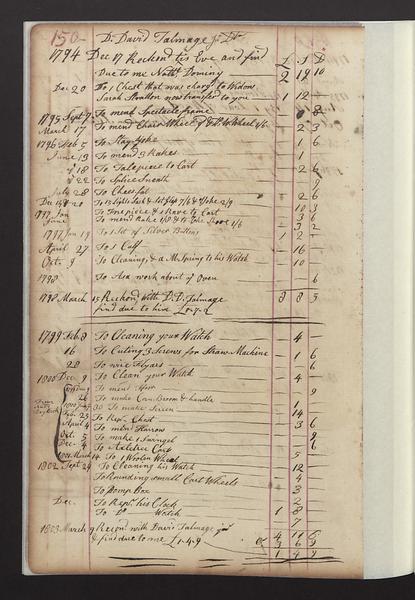 150 Dr David Talmage Jr Dr
1794 Dec 17 Reckond this Eve and find £ S D
Due to me Nathl Dominy 2 19 10
Dec 20 To 1 Chest that was chargd to Widow
Sarah Stratton now transferd to you 1 12 —
1795 Sept 7 To mend Spectacle frame 8
March 17 To mend Chair Wheel 1/6 2 3
1796 Feb 5 To Stay Yoke 1 6
June 13 To mend 3 Rakes 1
18 To Tale piece to Cart 2 6
22 To Splice Sneath 9
July 28 To Chest Lock 2 6
10 3
1797 June To Tire piece & 1 Rave to Cart 3 6
June To mend Rake 1/8 & to 1/6 3 2
1797 Jan 19 To 1 Set of Silver Buttons 1 2 —
April 27 To 1 Calf 16
Oct. 9 To Cleaning, & a M. Spring to his Watch 10 —
1798 To Asa work about yr Oven 6
1798 March 15 Reckond With D: Talmage 8 8 3
find due to him £0-7-2
1799 Feb 8 To Cleaning your Watch 4 —
16 To Cuting 3 Screws for Straw Machine 1 6
28 To wire Flyars 6
1800 Dec 9 To Clean your Watch 4 —
To mend 9
26 To make Corn Broom & handle 1
30 To make Screen 14
Feb. 23 To Repr. Chest 3 6
April 4 To mend Harrow
Oct. 5 To make 1 Swingel 9
Dec. 4 To Axletree Cart 6
1801 March 14 To 1 Woolen Wheel 5
1802 Sept 29 To Cleaning his Watch 12
To Rounding small Cart Wheels 4
To Pomp Box 3
Dec. To Repr. his Clock 2
To Do Watch 1 8
7
1803 March 9 Reckd with David Talmage jr 4 11 6
& find due to me £1-4-9 3 6 9
1 4 9